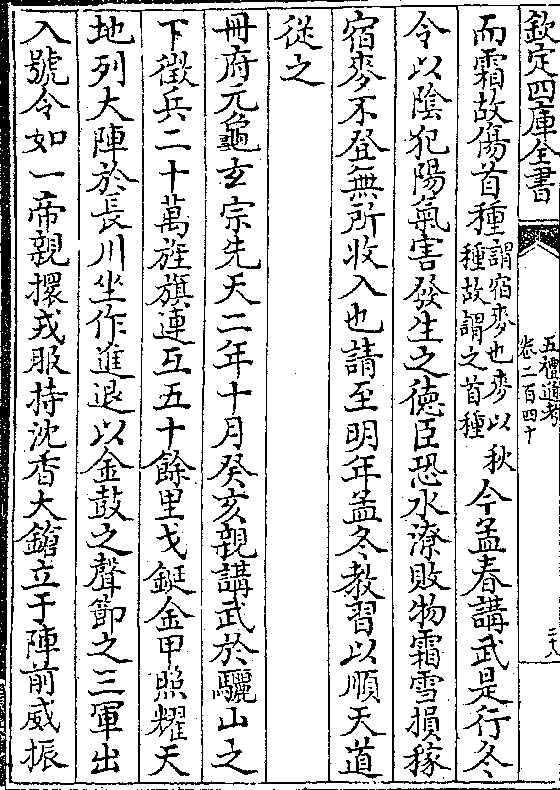 欽定四庫全書
五禮通考
卷二百四十
三八
而霜故傷首種謂宿麥也麥以秋
種故謂之首種今孟春講武是行冬
令以陰犯陽氣害發生之德臣恐水潦敗物霜雪損稼
宿麥不登無所收入也請至明年孟冬教習以順天道
從之
冊府元龜玄宗先天二年十月癸亥親講武於驪山之
下徵兵二十萬旌旗連亙五十餘里戈鋋金甲照耀天
地列大陣於長川坐作進退以金鼓之聲節之三軍出
入號令如一帝親擐戎服持沈香大鎗立于陣前威振